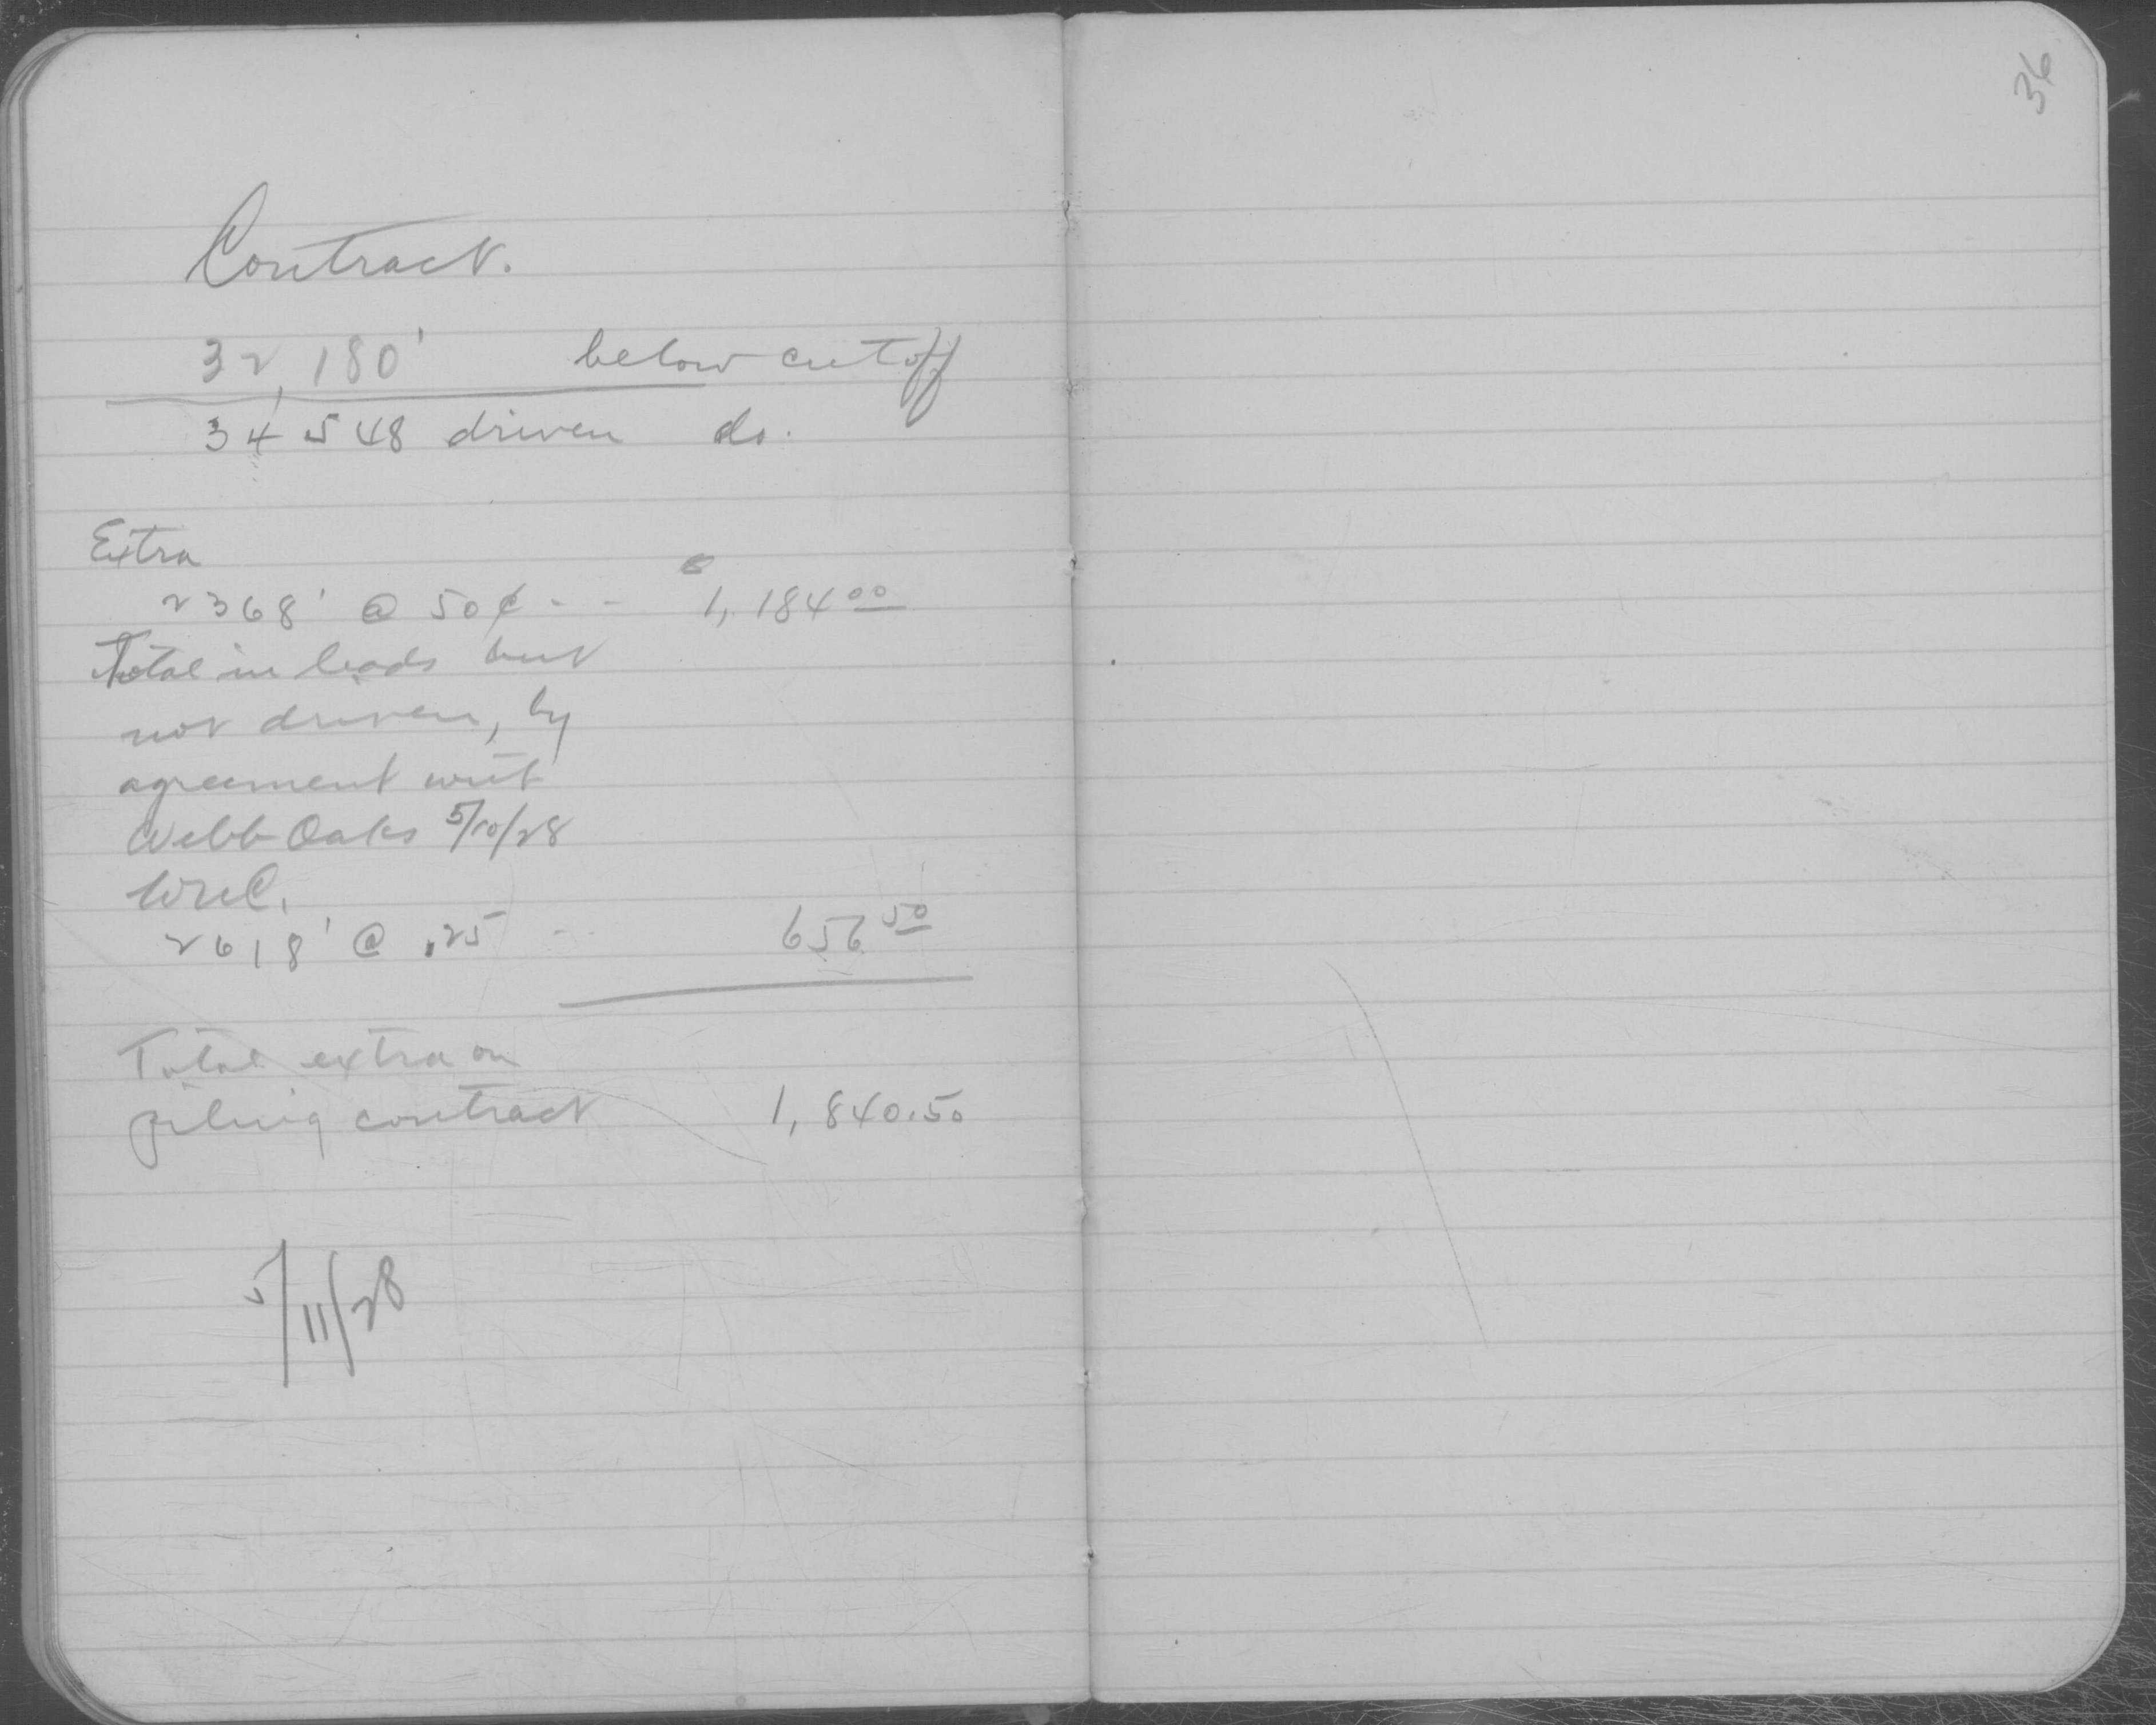 Contract.
32,180' below cutoff
34548 driven do.
Extra
2368' @ 50¢ - - 1,184 00
Total in leads but
not driven, by
agreement with
Webb Oaks 5/10/28
2618' @ .25 -- 656 50
Total extra on
piling contract 1,840.50
5/11/28
36